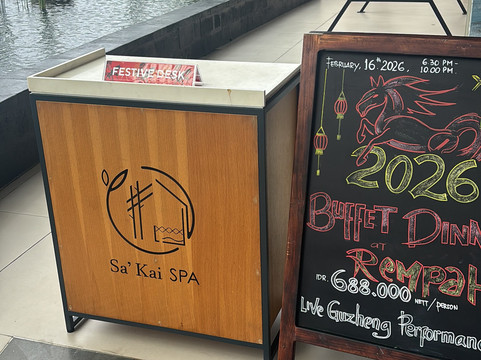 FESTIVE DESK
Sa' Kai SPA
FEBRUARY, 16th 2026, 6:30 PM-
10:00 PM.
2026
BUFFET DINN
AT
REMPAH
IDR. 688.000 NETT/PERSON
LIVE GUZHENG PERFORMANC